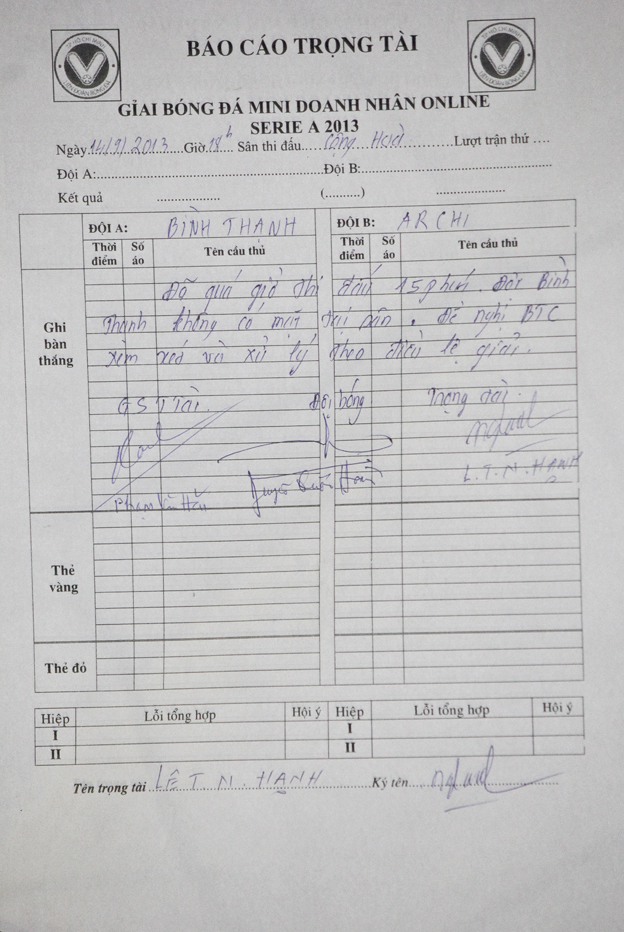 TP HỒ CHÍ MINH
LIÊN ĐOÀN BÓNG ĐÁ
BÁO CÁO TRỌNG TÀI
TP HỒ CHÍ MINH
LIÊN ĐOÀN BÓNG ĐÁ
GIẢI BÓNG ĐÁ MINI DOANH NHÂN ONLINE
SERIE A 2013
Ngày 14/9/2013 Giờ 18h Sân thi đấu Cộng Hoà Lượt trận thứ ....
Đội A: Đội B:
Kết quả .................. (..........) ..................
ĐỘI A: BÌNH THẠNH ĐỘI B: ARCHI
Thời điểm Số áo Tên cầu thủ Thời điểm Số áo Tên cầu thủ
Ghi bàn thắng
Đã quá giờ thi đấu 15 phút. Đội Bình
Thạnh không có mặt tại sân. Đề nghị BTC
xem xét và xử lý theo điều lệ giải.
GS T Tài. Đội bóng Trọng tài.
Phạm Văn L.T.N.HẠNH
Thẻ vàng
Thẻ đỏ
Hiệp Lỗi tổng hợp Hội ý Hiệp Lỗi tổng hợp Hội ý
I I
II II
Tên trọng tài LÊ T.N.HẠNH Ký tên